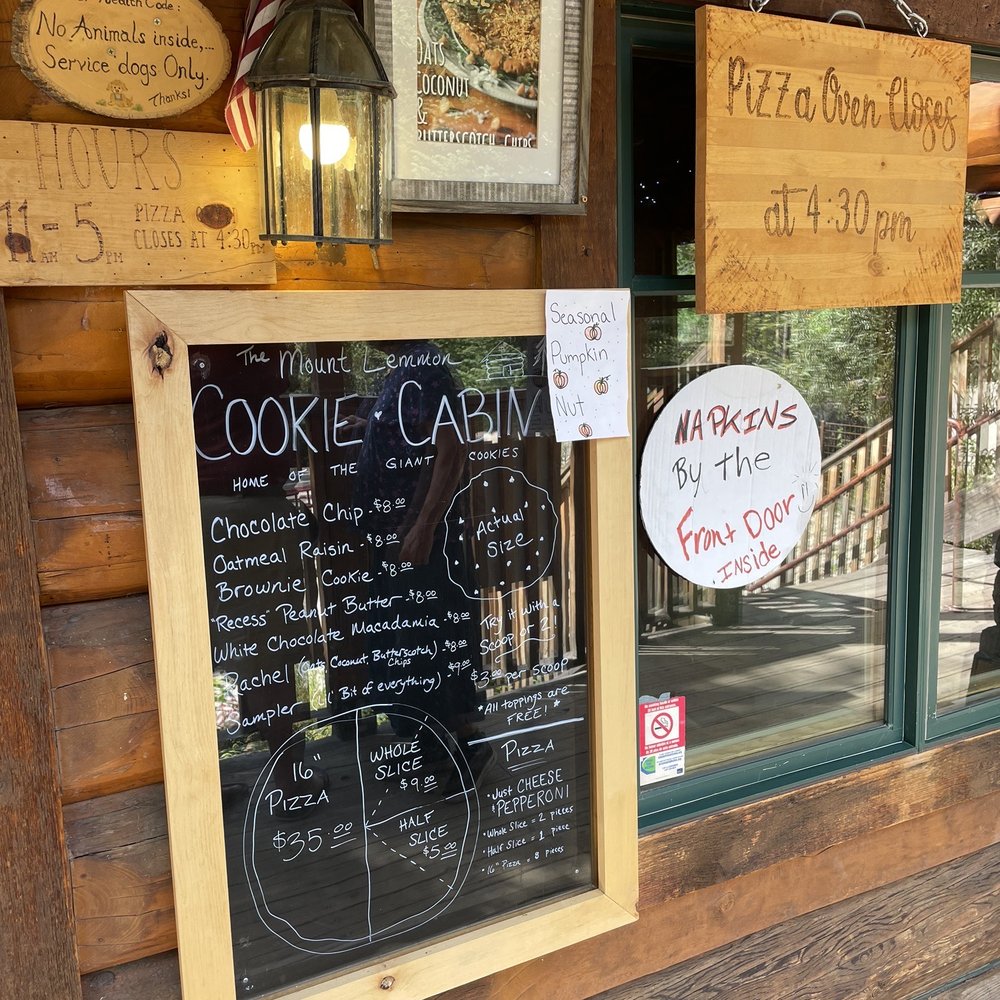 Health Code:
No Animals inside,...
Service dogs Only.
Thanks!
HOURS
11 AM - 5 PM
PIZZA
CLOSES AT 4:30 PM
OATS
COCONUT
&
BUTTERSCOTCH CHIPS
Pizza Oven Closes
at 4:30 pm
Seasonal
Pumpkin
Nut
The Mount Lemmon
COOKIE CABIN
HOME OF THE GIANT COOKIES
Chocolate Chip - $8.00
Oatmeal Raisin - $8.00
Brownie Cookie - $8.00
"Recess" Peanut Butter - $8.00
White Chocolate Macadamia - $8.00
Rachel (Oats, Coconut, Butterscotch Chips) - $8.00
Sampler (Bit of everything) - $9.00
Actual
Size
Try it with a
Scoop or 2!
$3.00 per Scoop
*All toppings are
FREE!*
16"
PIZZA
$35.00
WHOLE
SLICE
$9.00
HALF
SLICE
$5.00
PIZZA
• Just CHEESE
& PEPPERONI
• Whole Slice = 2 pieces
• Half Slice = 1 piece
• 16" Pizza = 8 pieces
NAPKINS
By the
Front Door
INSide